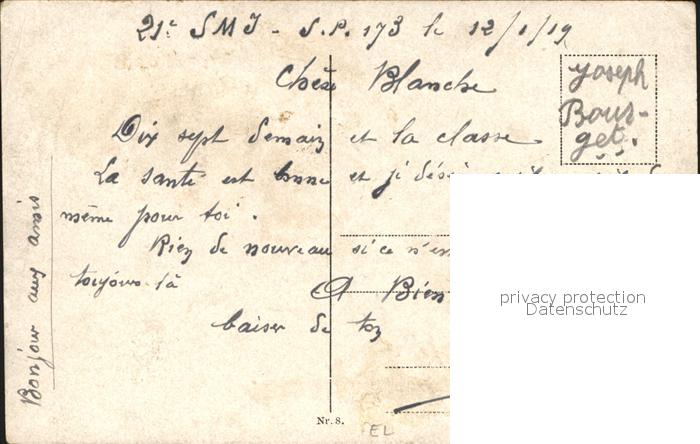 21e SMI - S.P. 173 le 12/1/19
Chère Blanche
Joseph
Bour-
get.
Dix sept demain et la classe
La santé est bonne et je
même pour toi.
Rien de nouveau si ce n'en
toujours là
A Bien
baiser de ton
Bonjour aux amis
privacy protection
Datenschutz
Nr. 8.
EL